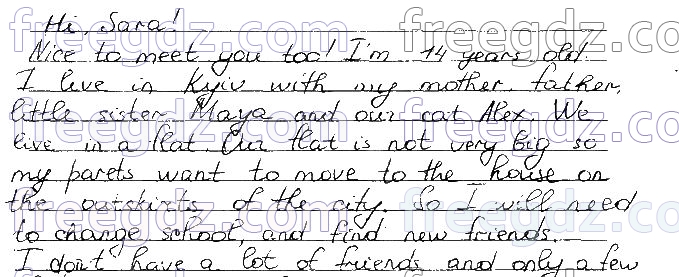 Hi, Sara!
Nice to meet you too! I'm 14 years old.
I live in Kyiv with my mother, father,
little sister Maya and our cat Alex. We
live in a flat. Our flat is not very big so
my parets want to move to the house on
the outskirts of the city. So I will need
to change school, and find new friends.
I don't have a lot of friends and only a few